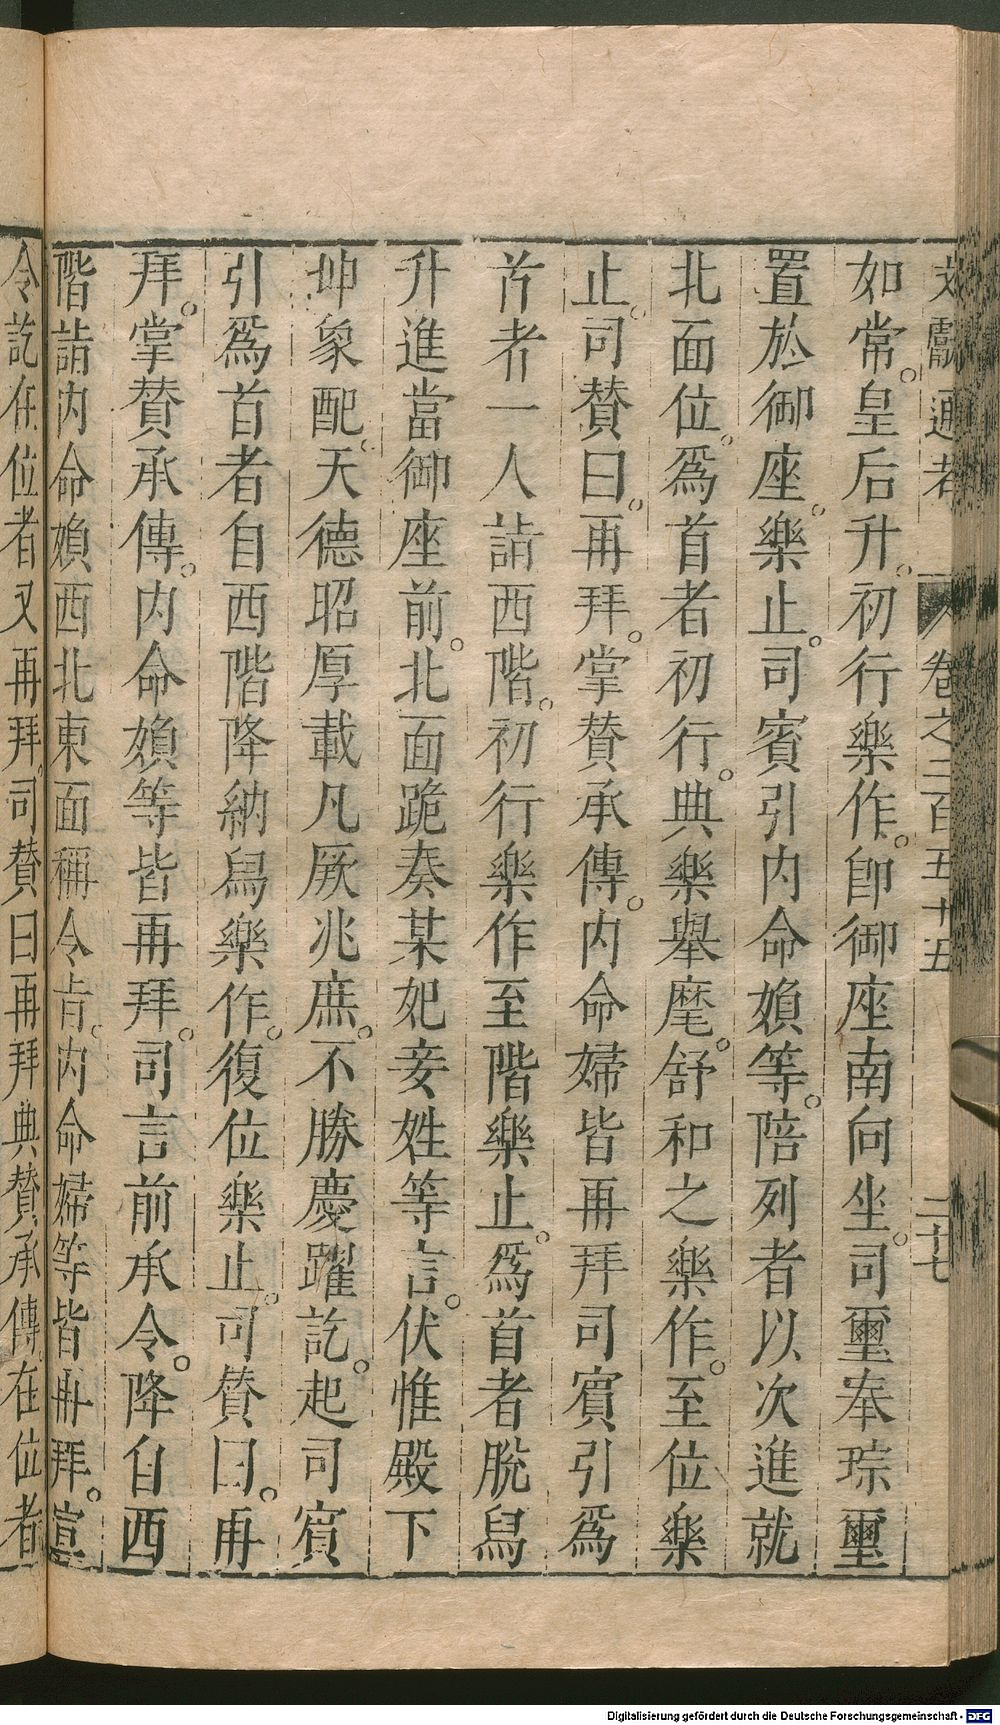 文獻通考 卷之二百五十五 二十七
如常。皇后升。初行樂作。卽御座南向坐。司璽奉琮璽
置於御座。樂止。司賓引内命婦等。陪列者以次進就
北面位。爲首者初行。典樂舉麾。舒和之樂作。至位樂
止。司贊曰。再拜。掌贊承傳。内命婦皆再拜司賓引爲
首者一人詣西階。初行樂作至階樂止。爲首者脫舄
升進當御座前。北面跪奏某妃妾姓等言。伏惟殿下
坤象配。天德昭厚載凡厥兆庶。不勝慶躍訖。起司賓
引爲首者自西階降納舄樂作。復位樂止。司贊曰。再
拜。掌贊承傳。内命婦等皆再拜。司言前承令。降自西
階詣内命婦西北東面稱令旨。内命婦等皆再拜。宣
令訖在位者又再拜。司贊曰再拜典贊承傳在位者
Digitalisierung gefördert durch die Deutsche Forschungsgemeinschaft - DFG